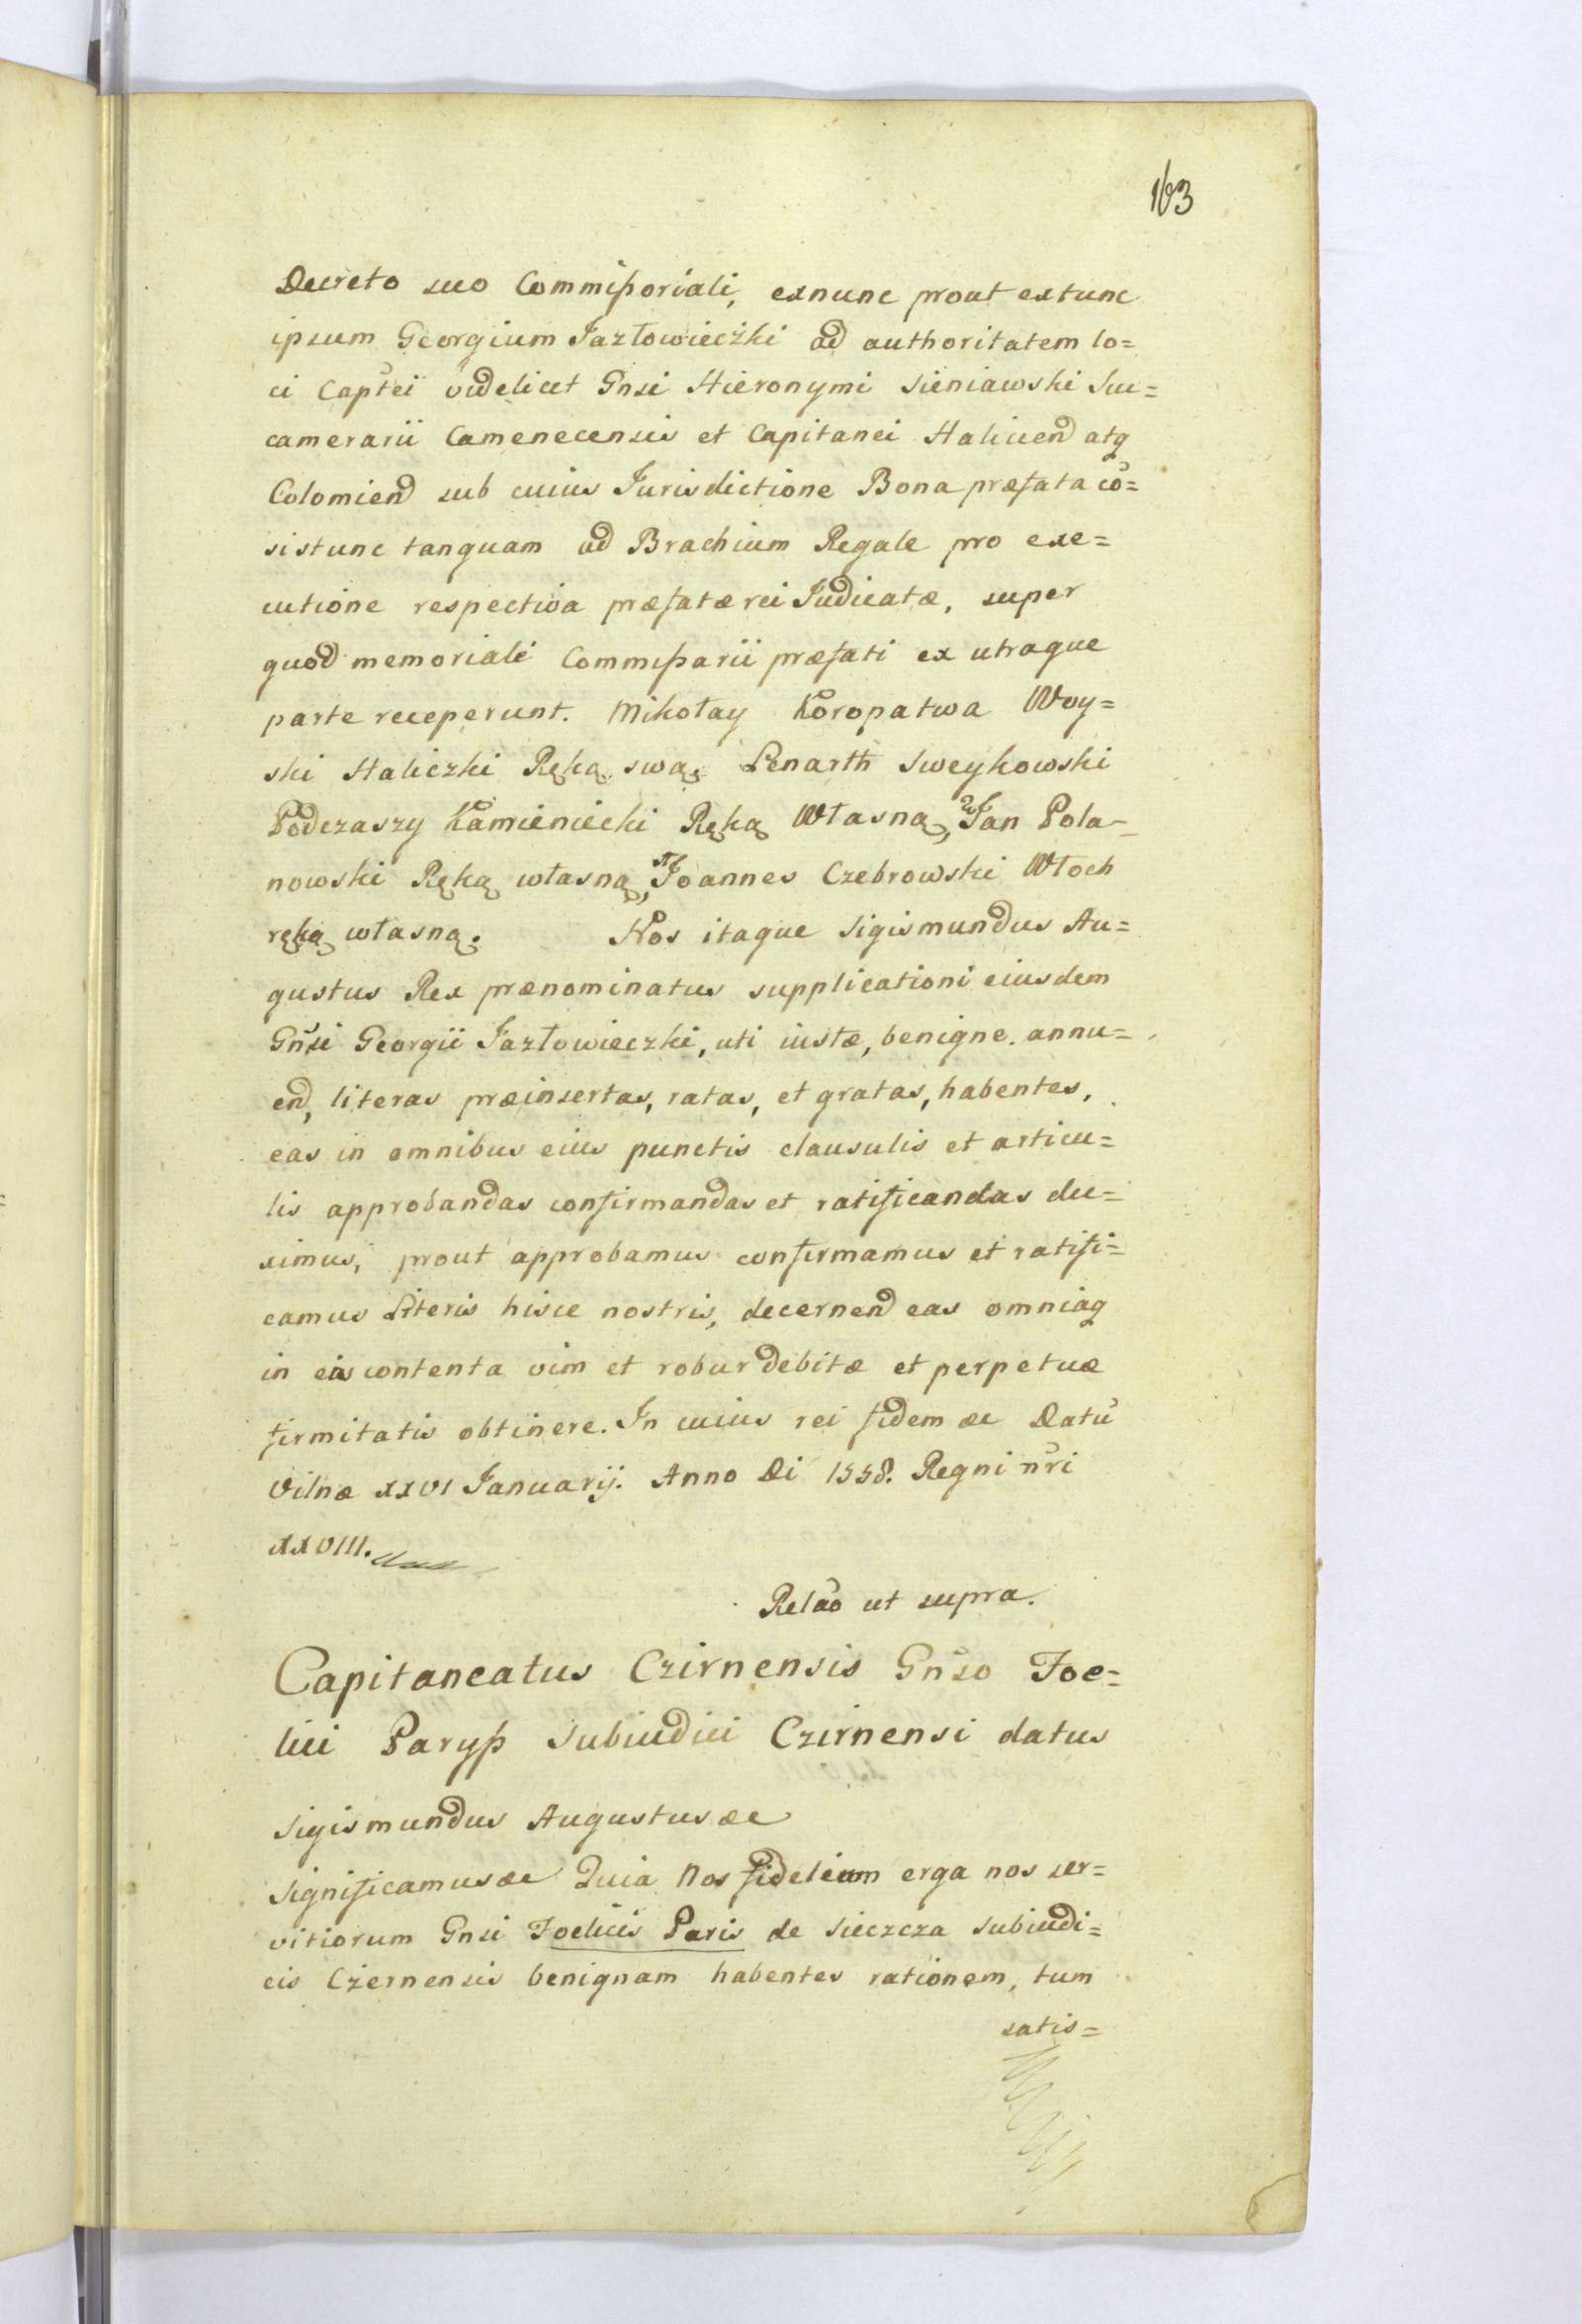 163
Decreto suo Commißoriali, exnunc prout extunc
ipsum Georgium Jazłowieczki ad authoritatem lo=
ci Captei videlicet Gnsi Hieronymi Sieniawski Suc=
camerarii Camenecensis et Capitanei Halicien atq
Colomien sub cuius Jurisdictione Bona præfata cō=
sistunc tanquam ad Brachium Regale pro exe=
cutione respectiva præfatæ rei Judicatæ, super
quod memoriale Commißarii præfati ex utraque
parte receperunt. Mikołay Koropatwa Woy=
ski Haliczki Ręką swą, Lenarth Sweykowski
Podczaszy Kamieniecki Ręką Własną, Jan Pola=
nowski Ręką własną, Joannes Czebrowski Włoch
ręką własną. Nos itaque Sigismundus Au=
gustus Rex prænominatus supplicationi eiusdem
Gnsi Georgii Jazłowieczki, uti iustæ, benigne annu=
en, literas præinsertas, ratas, et gratas, habentes,
eas in omnibus eius punctis clausulis et articu=
lis approbandas confirmandas et ratificandas du=
ximus, prout approbamus confirmamus et ratifi=
camus Literis hisce nostris, decernen eas omniaq
in eis contenta vim et robur debitæ et perpetuæ
firmitatis obtinere. In cuius rei fidem &c Datū
Vilnæ XXVI Januarij. Anno Di 1558. Regni nri
XXVIII.
Relāo ut supra.
Capitaneatus Czirnensis Gnso Foe=
lici Paryß Subiudici Czirnensi datus
Sigismundus Augustus &c
Significamus &c Quia Nos fidelium erga nos ser=
vitiorum Gnsi Foelicis Paris de Sieczcza Subiudi=
cis Cziernensis benignam habentes rationem, tum
satis=